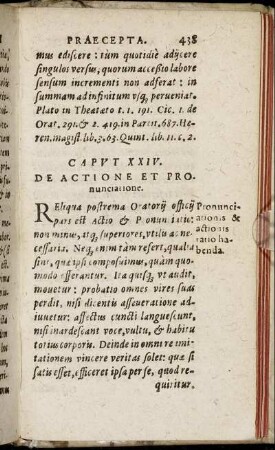 PRAECEPTA. 438
mus ediscere: tum quotidiè adijcere
singulos versus, quorum acceßio labore
sensum incrementi non adferat: in
summam ad infinitum vsq; perueniat.
Plato in Theatato t. 1. 191. Cic. 1. de
Orat. 291. & t. 419. in Partit. 687. He-
ren. magist. lib. 3. 63. Quint. lib. 11. c. 2.
CAPVT XXIV.
DE ACTIONE ET PRO-
nunciatione.
REliqua postrema Oratorij officij
pars est Actio & Pronuntiatio:
non minus, atq; superiores, vtilis ac ne-
cessaria. Neq; enim tam refert, qualia
sint, quæ ipsi composuimus, quàm quo-
modo efferantur. Ita quisq; vt audit,
mouetur: probatio omnes vires suas
perdit, nisi dicentis asseueratione ad-
iuuetur: affectus cuncti languescunt,
nisi inardescant voce, vultu, & habitu
totius corporis. Deinde in omni re imi-
tationem vincere veritas solet: quæ si
satis esset, efficeret ipsa per se, quod re-
quiritur.
Pronunci-
ationis &
actionis
ratio ha-
benda.